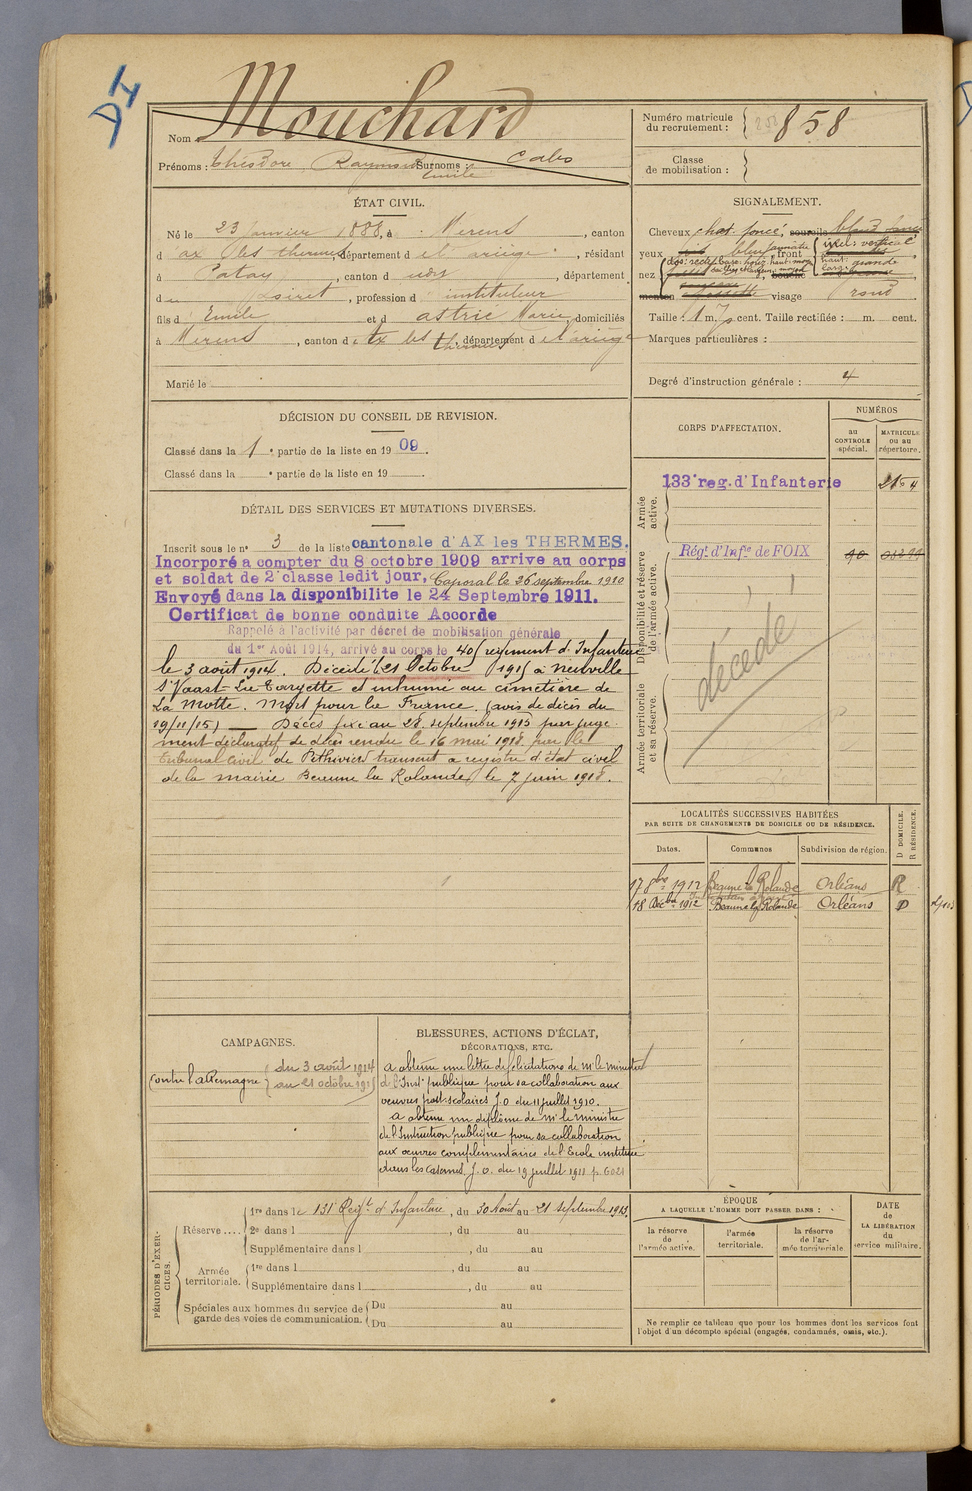 DI
Nom Mouchard
Prénoms : Théodore Raymond Emile Surnoms : Cabo
Numéro matricule du recrutement : 858
Classe de mobilisation :
ÉTAT CIVIL.
Né le 23 janvier 1888, à Merens, canton
d'ax les thermes département de l'ariège, résidant
à Patay, canton d udt, département
du Loiret, profession d instituteur
fils d Emile et d astrié Marie, domiciliés
à Merens, canton d'Ax les thermes, département de l'ariège
Marié le
SIGNALEMENT.
Cheveux chat. foncé, sourcils blond foncé
yeux bleu jaunâtre front incl: verticale
haut: grande
larg:
nez dos: rect base: horiz haut: moy
saillie: larg: moyen bouche
menton fossette visage rond
Taille : 1 m. 75 cent. Taille rectifiée : m. cent.
Marques particulières :
Degré d'instruction générale : 4
DÉCISION DU CONSEIL DE REVISION.
Classé dans la 1e partie de la liste en 1909.
Classé dans la e partie de la liste en 19 .
CORPS D'AFFECTATION.
NUMÉROS
au CONTROLE spécial.
MATRICULE ou au répertoire.
Armée active.
133e reg. d'Infanterie 2164
Disponibilité et réserve de l'armée active.
Régt d'Infie de FOIX 40
Armée territoriale et sa réserve.
décédé
DÉTAIL DES SERVICES ET MUTATIONS DIVERSES.
Inscrit sous le no 3 de la liste cantonale d'AX les THERMES.
Incorporé a compter du 8 octobre 1909 arrive au corps
et soldat de 2e classe ledit jour, Caporal le 26 septembre 1910
Envoyé dans la disponibilite le 24 Septembre 1911.
Certificat de bonne conduite Accorde
Rappelé à l'activité par décret de mobilisation générale
du 1er Août 1914, arrivé au corps le 40e régiment d'Infanterie
le 3 août 1914. Décédé le 21 Octobre 1915 à Neuville
St Vaast-La Targette et inhumé au cimetière de
La Motte. Mort pour la France. (avis de décès du
19/11/15) — Décès fixé au 28 septembre 1915 par juge-
ment déclaratif de décès rendu le 16 mai 1918 par le
tribunal civil de Pithiviers transcrit a registre d'état civil
de la mairie Beaune la Rolande le 7 juin 1918.
LOCALITÉS SUCCESSIVES HABITÉES
PAR SUITE DE CHANGEMENTS DE DOMICILE OU DE RÉSIDENCE.
D DOMICILE. R RÉSIDENCE.
Dates. Communes Subdivision de région.
17 8bre 1912 Beaune la Rolande Orléans R
18 Décbre 1912 Beaune la Rolande Orléans D
CAMPAGNES.
Contre l'allemagne du 3 août 1914
au 21 octobre 1915
BLESSURES, ACTIONS D'ÉCLAT,
DÉCORATIONS, ETC.
a obtenu une lettre de félicitations de M le ministre
de l'Inst publique pour sa collaboration aux
oeuvres post-scolaires J.O du 11 juillet 1910.
a obtenu un diplôme de Mr le ministre
de l'Instruction publique pour sa collaboration
aux oeuvres complémentaires de l'Ecole instituées
dans les casernes. J.O. du 19 juillet 1911 p. 6021
PÉRIODES D'EXERCICES.
Réserve ....
1re dans le 131 Regt d'Infanterie, du 30 Août au 21 septembre 1913.
2e dans l , du au
Supplémentaire dans l , du au
Armée territoriale.
1re dans l , du au
Supplémentaire dans l , du au
Spéciales aux hommes du service de garde des voies de communication.
Du au
Du au
ÉPOQUE
A LAQUELLE L'HOMME DOIT PASSER DANS :
la réserve de l'armée active.
l'armée territoriale.
la réserve de l'armée territoriale
DATE de LA LIBÉRATION du service militaire.
Ne remplir ce tableau que pour les hommes dont les services font
l'objet d'un décompte spécial (engagés, condamnés, omis, etc.).